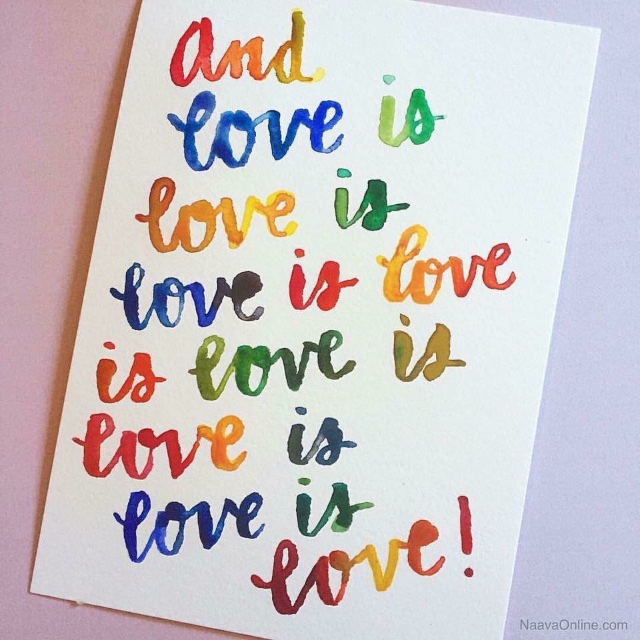 and
love is
love is
love is love
is love is
love is
love is
love!
NaavaOnline.com